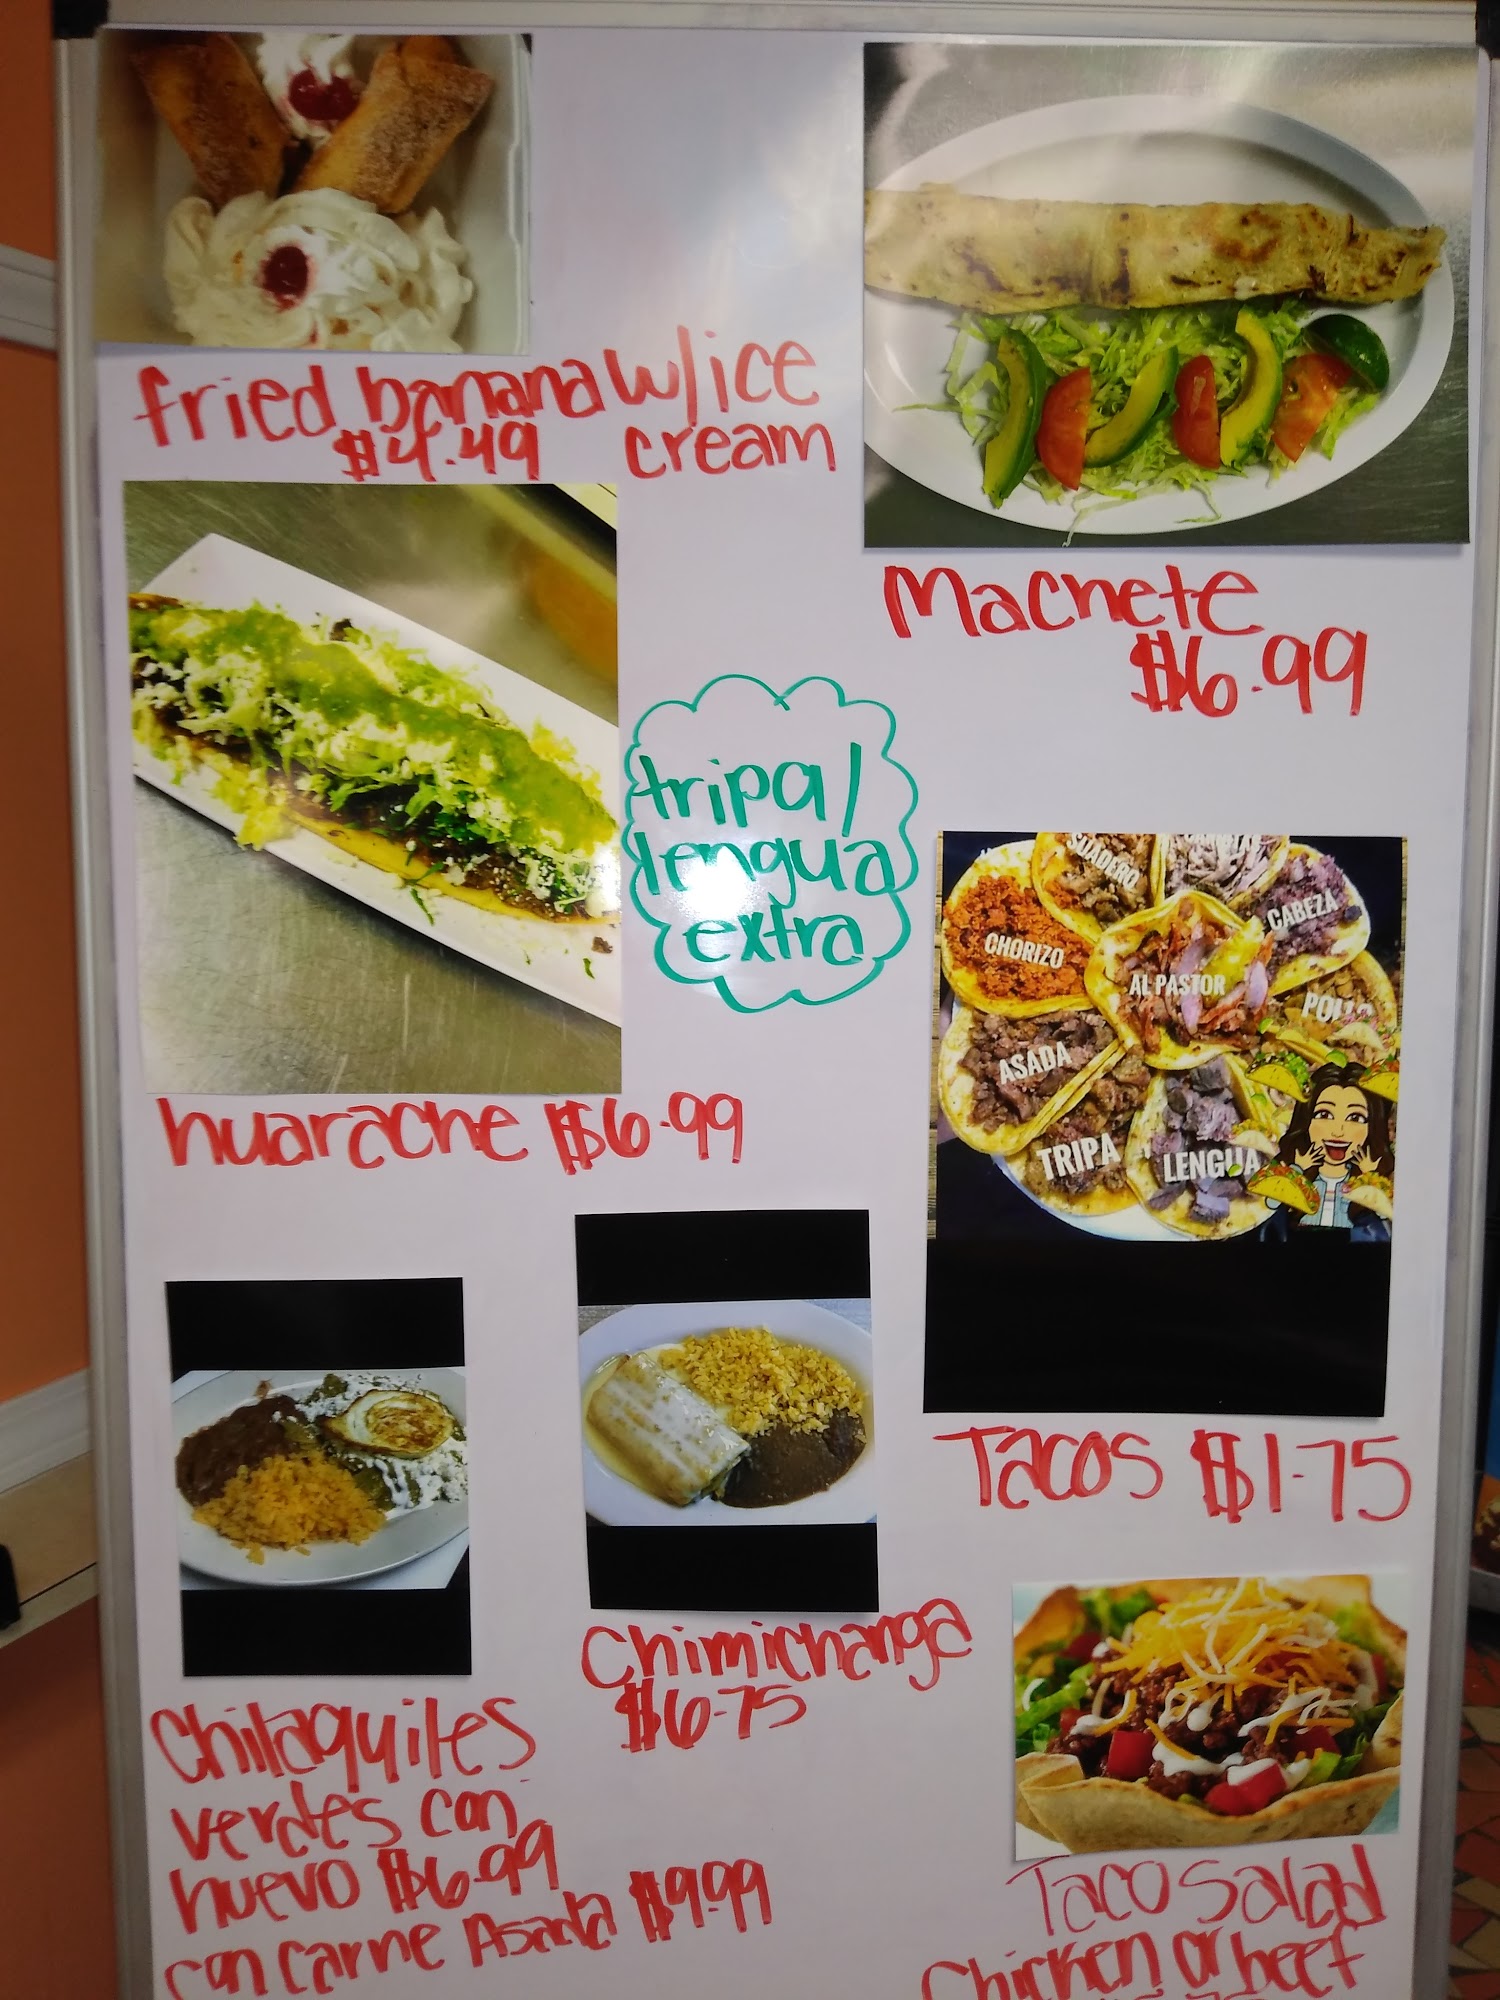 fried banana w/ice
$4.49 cream
Machete
$6.99
tripa/
lengua
extra
SUADERO
CABEZA
CHORIZO
AL PASTOR
POLLO
ASADA
TRIPA
LENGUA
huarache $6.99
Tacos $1.75
Chimichanga
$6.75
Chilaquiles
verdes con
huevo $6.99
con carne Asada $9.99
Taco Salad
Chicken or beef